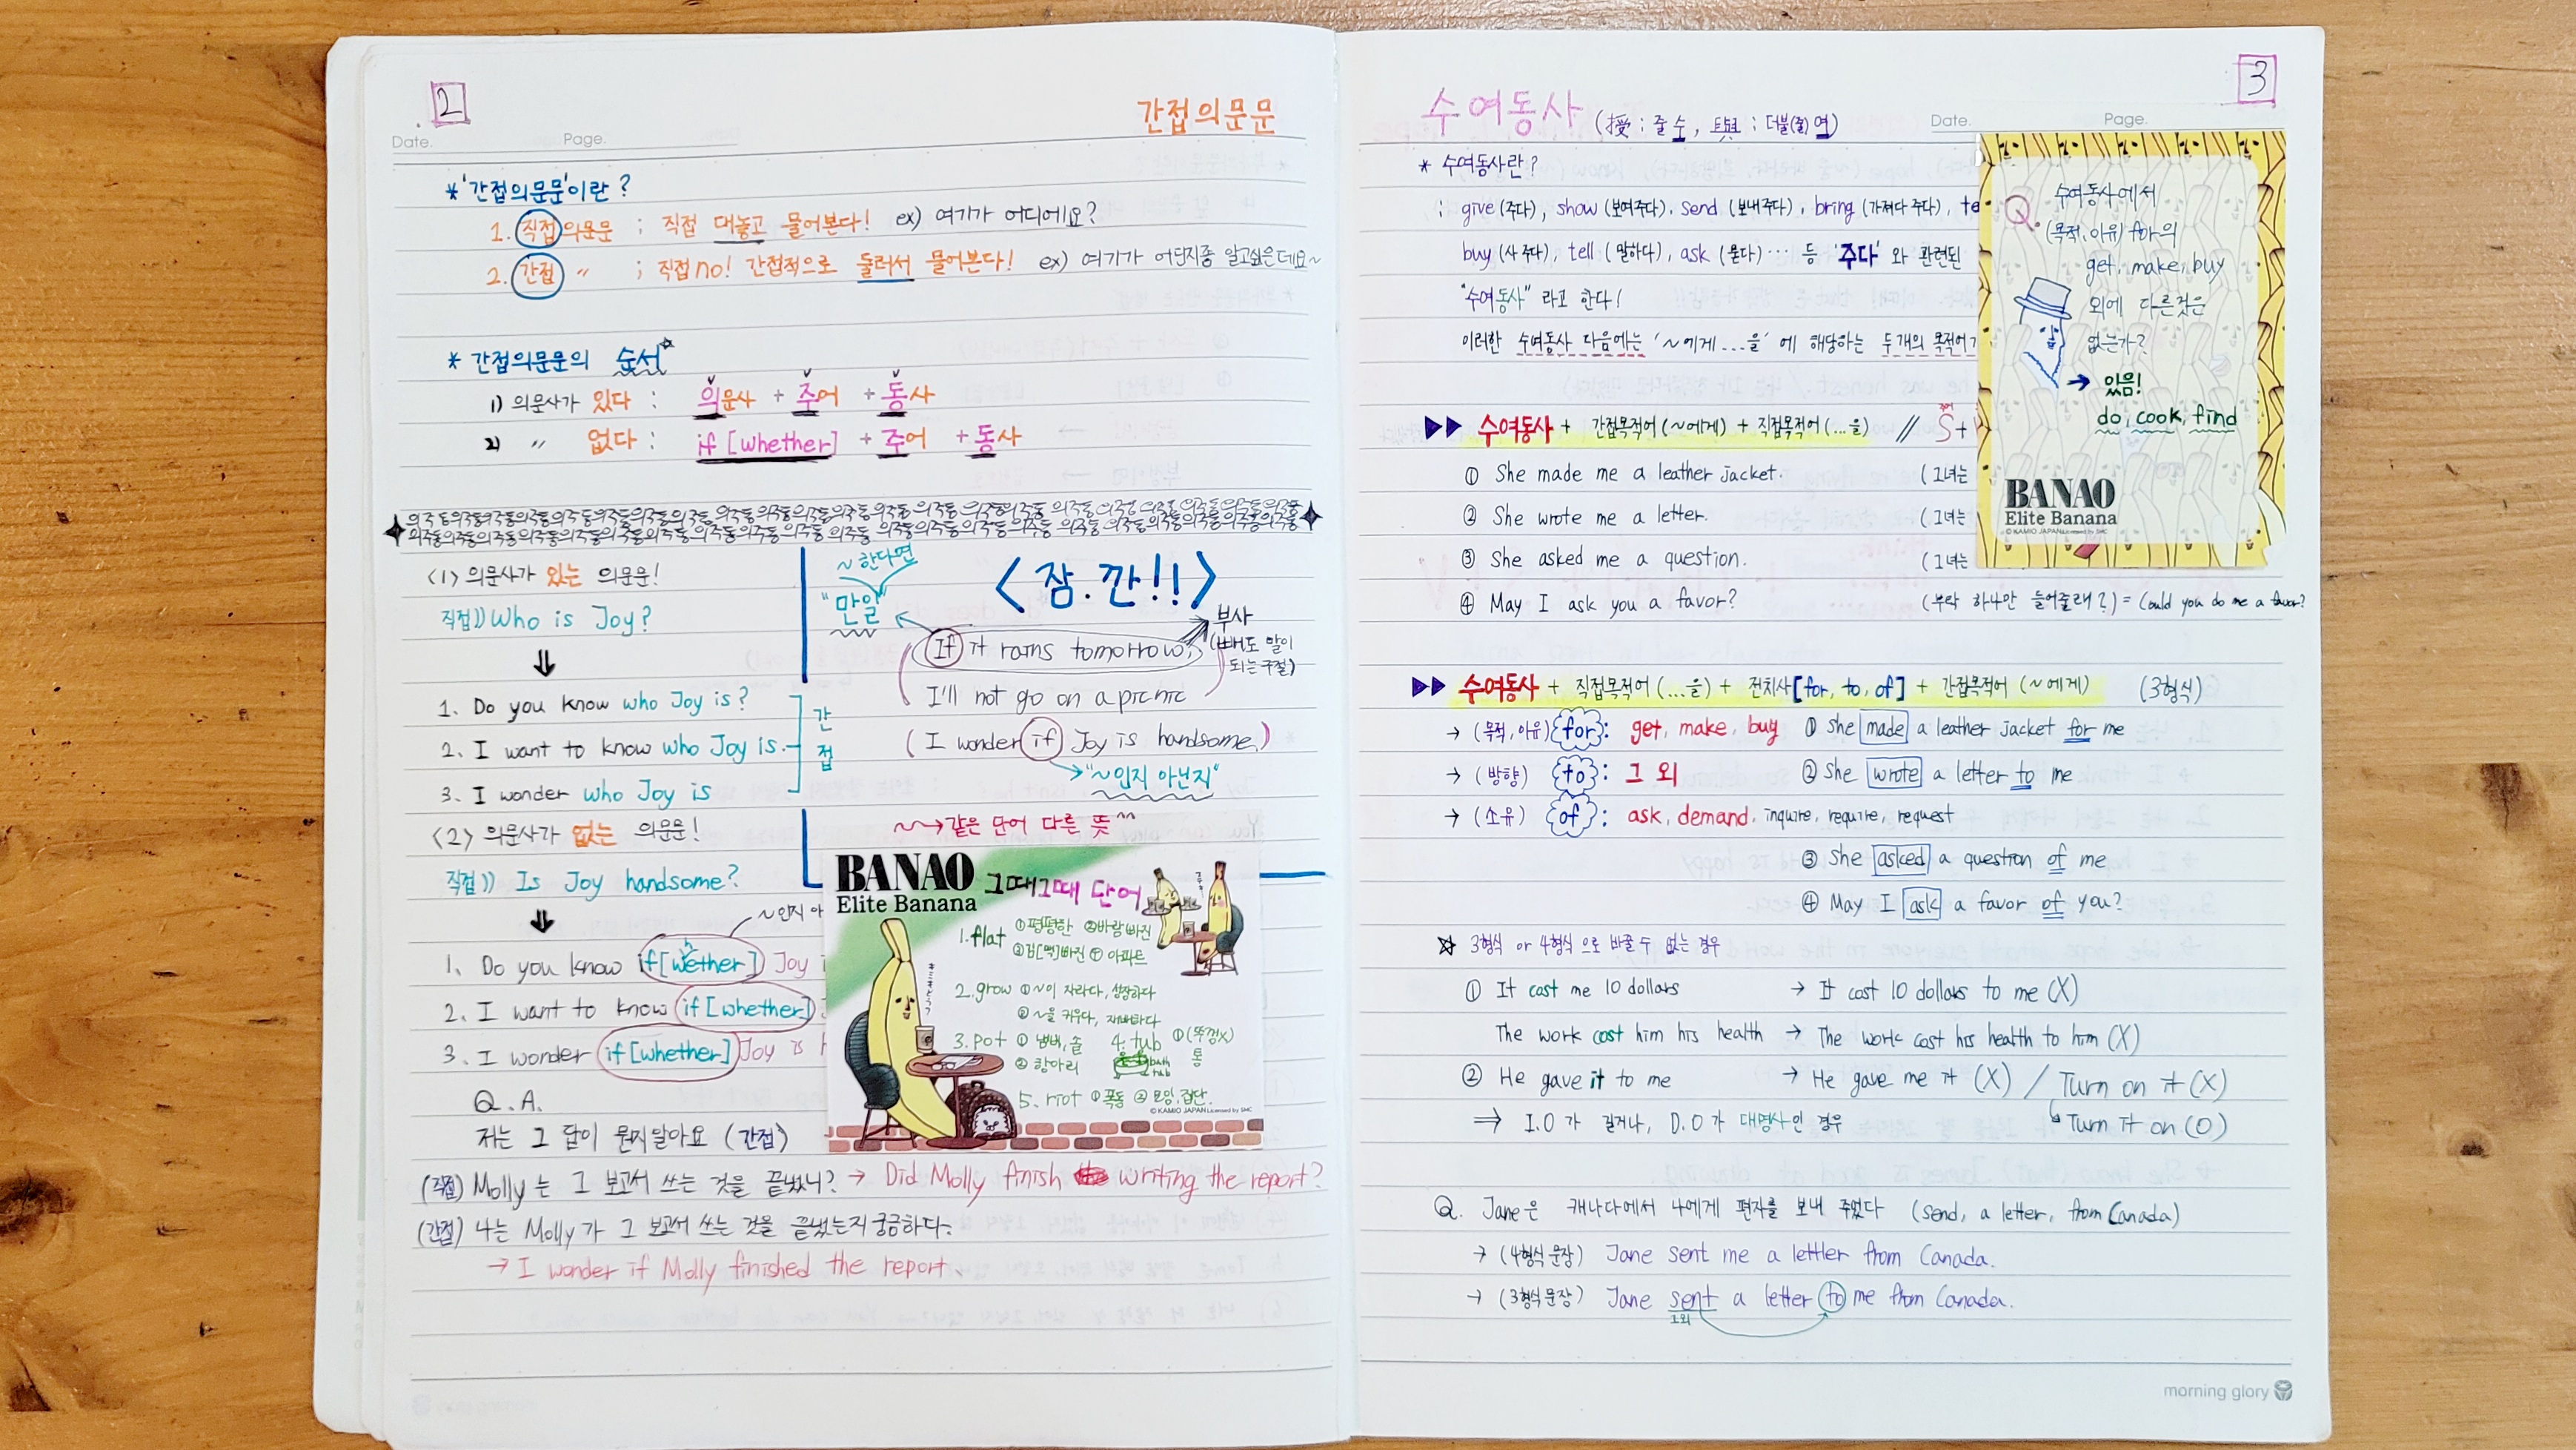 2
간접의문문
Date. Page.
*'간접의문문'이란?
1. 직접의문문 ; 직접 대놓고 물어본다! ex) 여기가 어디에요?
2. 간접 〃 ; 직접 no! 간접적으로 둘러서 물어본다! ex) 여기가 어딘지좀 알고싶은데요~
* 간접의문문의 순서
1) 의문사가 있다 : 의문사 + 주어 + 동사
2) 〃 없다 : if [whether] + 주어 + 동사
의주동의주동의주동의주동의주동의주동의주동 의주동의주동의주동의주동의주동 의주동 의주동의주동의주동
의주동의주동의주동의주동의주동의주동의주동의주동 의주동 의주동의주동의주동 의주동 의주동의주동의주동
<1> 의문사가 있는 의문문!
직접)) Who is Joy?
⇓
1. Do you know who Joy is?
2. I want to know who Joy is.
3. I wonder who Joy is
간접
<2> 의문사가 없는 의문문!
직접)) Is Joy handsome?
⇓
~인지 아
1. Do you know if[wether] Joy i
h
2. I want to know if[whether] J
3. I wonder if[whether] Joy is h
Q.A.
저는 그 답이 뭔지알아요 (간접)
(직접) Molly는 그 보고서 쓰는 것을 끝냈니? → Did Molly finish writing the report?
(간접) 나는 Molly가 그 보고서 쓰는 것을 끝냈는지 궁금하다.
→ I wonder if Molly finished the report.
~한다면
"만일"
<잠.깐!!>
부사
(빼도 말이
되는구절)
If it rains tomorrow,
I'll not go on a picnic
(I wonder if Joy is handsome.)
→"~인지 아닌지"
~~→같은 단어 다른 뜻^^
BANAO
Elite Banana
그때그때 단어
1. flat ①평평한 ②바람빠진
③김[맥]빠진 ④ 아파트
2. grow ①~이 자라다, 성장하다
②~을 키우다, 재배하다
3. pot ① 냄비, 솥
② 항아리
4. tub ①(뚜껑X)
통
bath
tub
5. riot ①폭동 ② 모임, 집단.
© KAMIO JAPAN Licensed by SMC
3
수여동사 (授 ; 줄 수, 與 ; 더불(줄) 여)
Date. Page.
* 수여동사란?
: give (주다), show (보여주다), send (보내주다), bring (가져다 주다), te
buy (사 주다), tell (말하다), ask (묻다) … 등 '주다' 와 관련된
"수여동사" 라고 한다!
이러한 수여동사 다음에는 '~에게 … 을' 에 해당하는 두개의 목적어가
▶▶ 수여동사 + 간접목적어 (~에게) + 직접목적어 (…을) // S+
① She made me a leather jacket. (그녀는
② She wrote me a letter. (그녀는
③ She asked me a question. (그녀는
④ May I ask you a favor? (부탁 하나만 들어줄래?) = Could you do me a favor?
Q. 수여동사에서
(목적, 이유) for의
get, make, buy
외에 다른것은
없는가?
→ 있음!
do, cook, find
BANAO
Elite Banana
© KAMIO JAPAN Licensed by SMC
▶▶ 수여동사 + 직접목적어 (…을) + 전치사[for, to, of] + 간접목적어 (~에게) (3형식)
→ (목적, 이유) for : get, make, buy ① She made a leather jacket for me
→ (방향) to : 그 외 ② She wrote a letter to me
→ (소유) of : ask, demand, inquire, require, request
③ She asked a question of me
④ May I ask a favor of you?
☆ 3형식 or 4형식 으로 바꿀 수 없는 경우
① It cost me 10 dollars → It cost 10 dollars to me (X)
The work cost him his health → The work cost his health to him (X)
② He gave it to me → He gave me it (X) / Turn on it (X)
⇒ I.O 가 길거나, D.O 가 대명사인 경우 Turn it on (O)
Q. Jane은 캐나다에서 나에게 편지를 보내 주었다 (send, a letter, from Canada)
→ (4형식 문장) Jane sent me a lettler from Canada.
→ (3형식문장) Jane sent a letter to me from Canada.
그외
morning glory